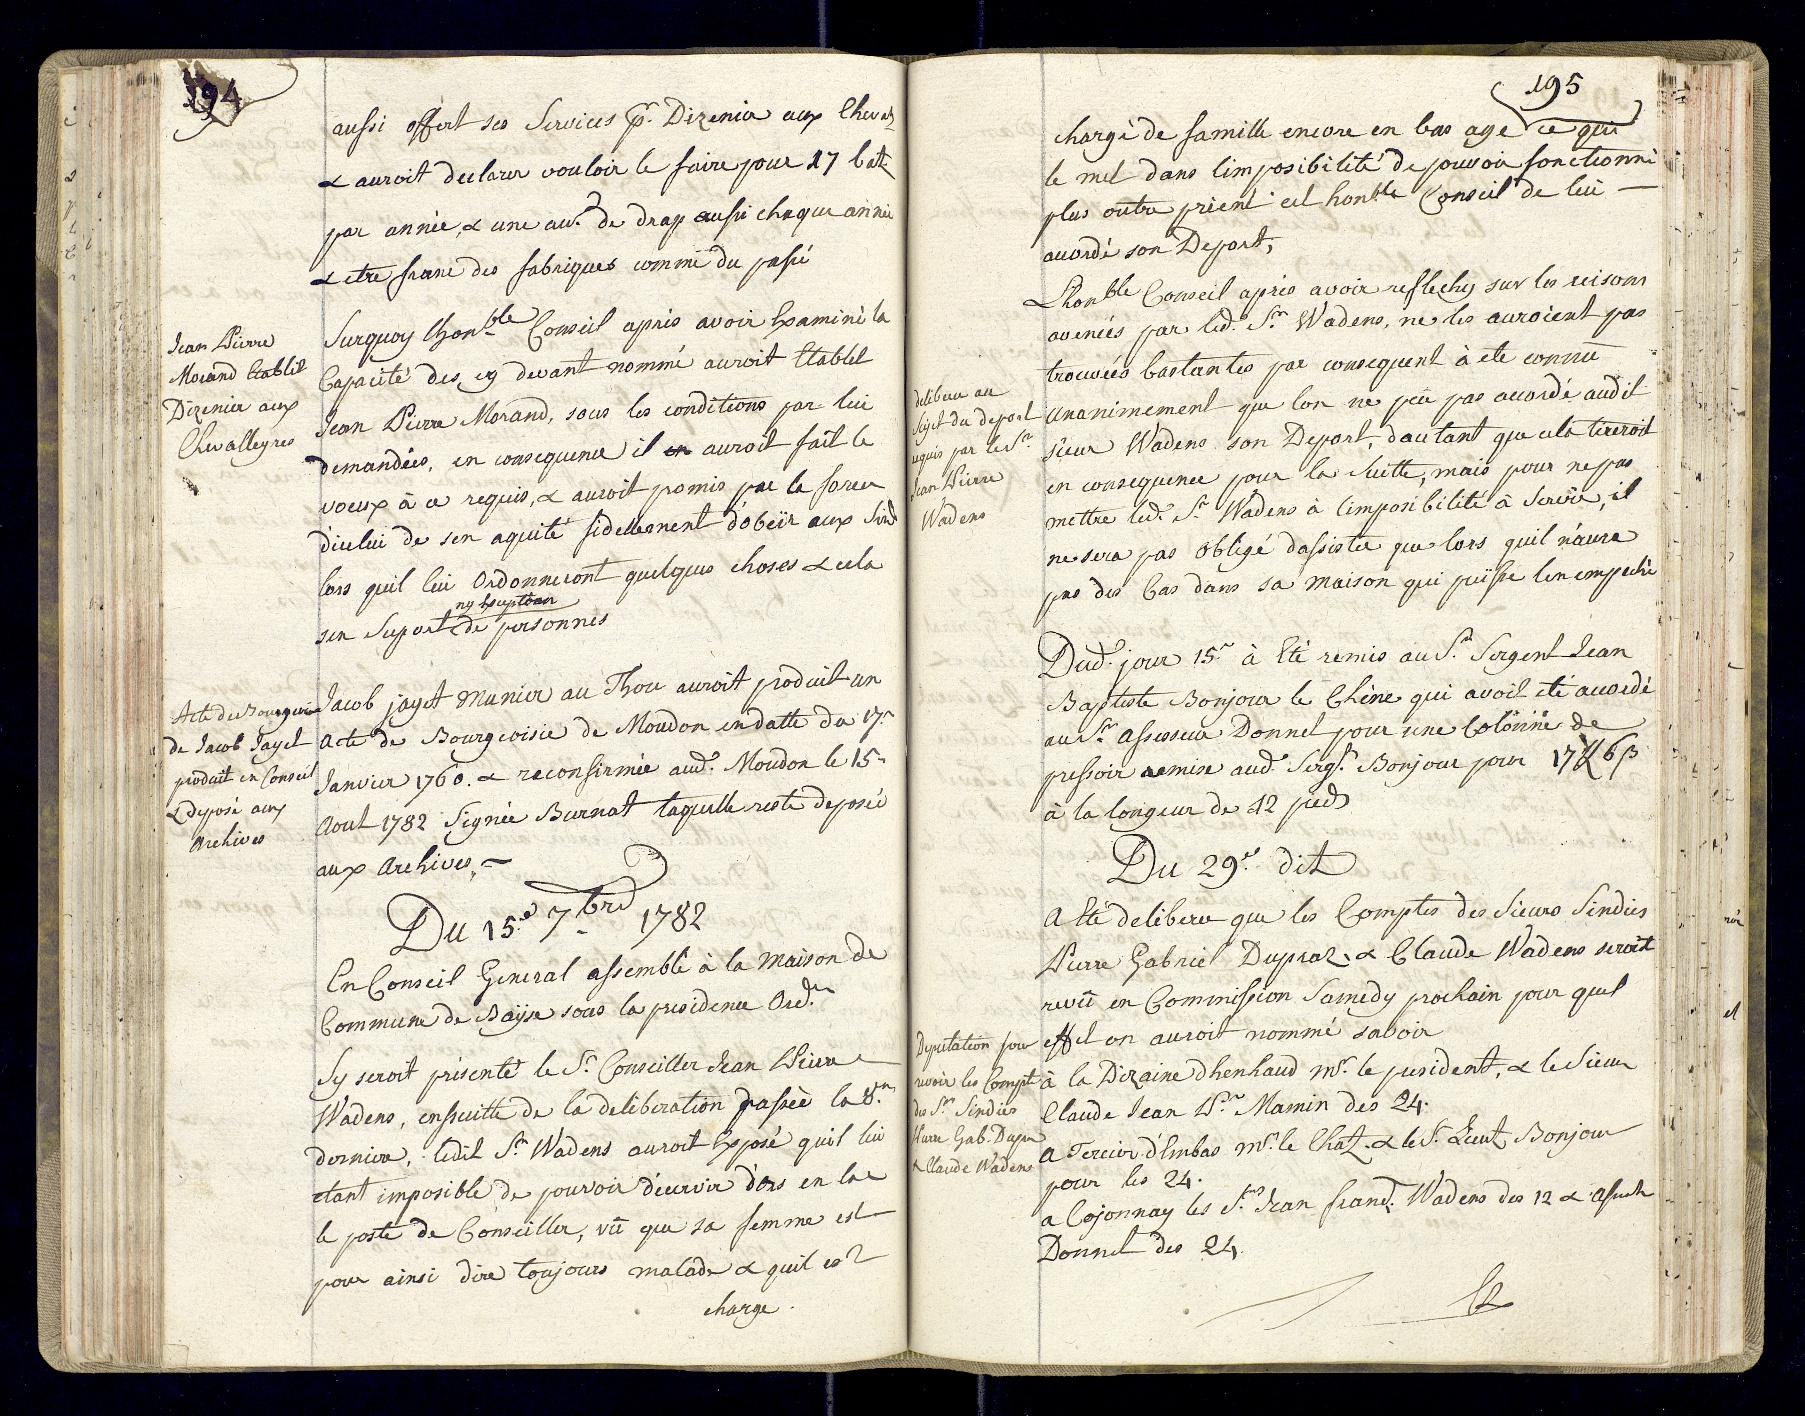 194
aussi offert ses Services pr. Dizenier aux Chevalz
& auroit declarer vouloir le faire pour 17 batz
par année, & une aue. de drap aussi chaque année
& etre franc des fabriques comme du passé
Jean Pierre
Morand Etablit
Dizenier aux
Chevalleyres
Surquoy Lhonble Conseil après avoir Examiné la
Capacité des cy devant nommé auroit Etablit
Jean Pierre Morand, sous les conditions par lui
demandées, en consequence il en auroit fait le
voeux à ce requis, & auroit promis par la force
d'icelui de sen aquité fidellement d'obeïr aux Sind
lors quil lui Ordonneront quelques choses & cela
ny Exception
sen Suport de personnes
Acte de Bourgeoisie
de Jacob Jayet
produit en Conseil
& deposé aux
Archives
Jacob jayet munier au Thou auroit produit un
acte de Bourgeoisie de Moudon en datte du 17e
Janvier 1760. & reconfirmée aud. Moudon le 15e
Aout 1782 Signée Burnat laquelle reste deposée
aux Archives,
Du 15e 7bre 1782
En Conseil General assemblé à la maison de
Commune de Bäÿse sous la presidence Ordre
Sy seroit présenté le Sr. Conseiller Jean Pierre
Wadens, ensuitte de la deliberation passée la 8me
derniere, ledit Sr. Wadens auroit Exposé quil lui
etant imposible de pouvoir décervir d'ors en la
le poste de Conseiller, vû que sa femme est
pour ainsi dire toujours malade & quil est
charge
195
chargé de famille encore en bas age ce qui
le met dans limposibilité de pouvoir fonctionné
plus outre prient cet honble Conseil de lui
acordé son Deport,
delibere au
Sujet du deport
requis par le Sr.
Jean Pierre
Wadens
Lhonble Conseil après avoir reflechy sur les reisons
avencés par led. Sr. Wadens, ne les auroient pas
trouvées bastantes par consequent à ete connû
Unanimement que lon ne peu pas acordé audit
sieur Wadens son Deport, dautant que cela tireroit
en consequence pour la Suitte, mais pour ne pas
mettre led. Sr. Wadens à limposibilité à Servir, il
ne sera pas obligé dassister que lors quil n'aura
pas des Cas dans sa maison qui puisse len empeché
Dud. jour 15e à Eté remis au Sr. Sergent Jean
Baptiste Bonjour le Chêne qui avoit été acordé
au Sr. Assesseur Donnet pour une Colonne de
pressoir remise aud. Sergt. Bonjour pour 17 L 6 β
à la longeur de 12 pieds
Du 29e dit
A Eté delibere que les Comptes des Sieurs Sindics
Pierre Gabriel Dupraz. & Claude Wadens seroit
revû en Commission Samedy prochain pour quel
effet on auroit nommé savoir
Deputation pour
revoir les Compt
des Srs. Sindics
Pierre Gab. Dupra
& Claude Wadens
à la Dizaine dhenhaud mr. le president, & le Sieur
Claude Jean Prre Mamin des 24.
a Tercier d'Embas mr. le Chat. & le Sr. Lieut Bonjour
pour les 24.
a Cojonnay les Srs. Jean frand. Wadens des 12 &
Donnet des 24.